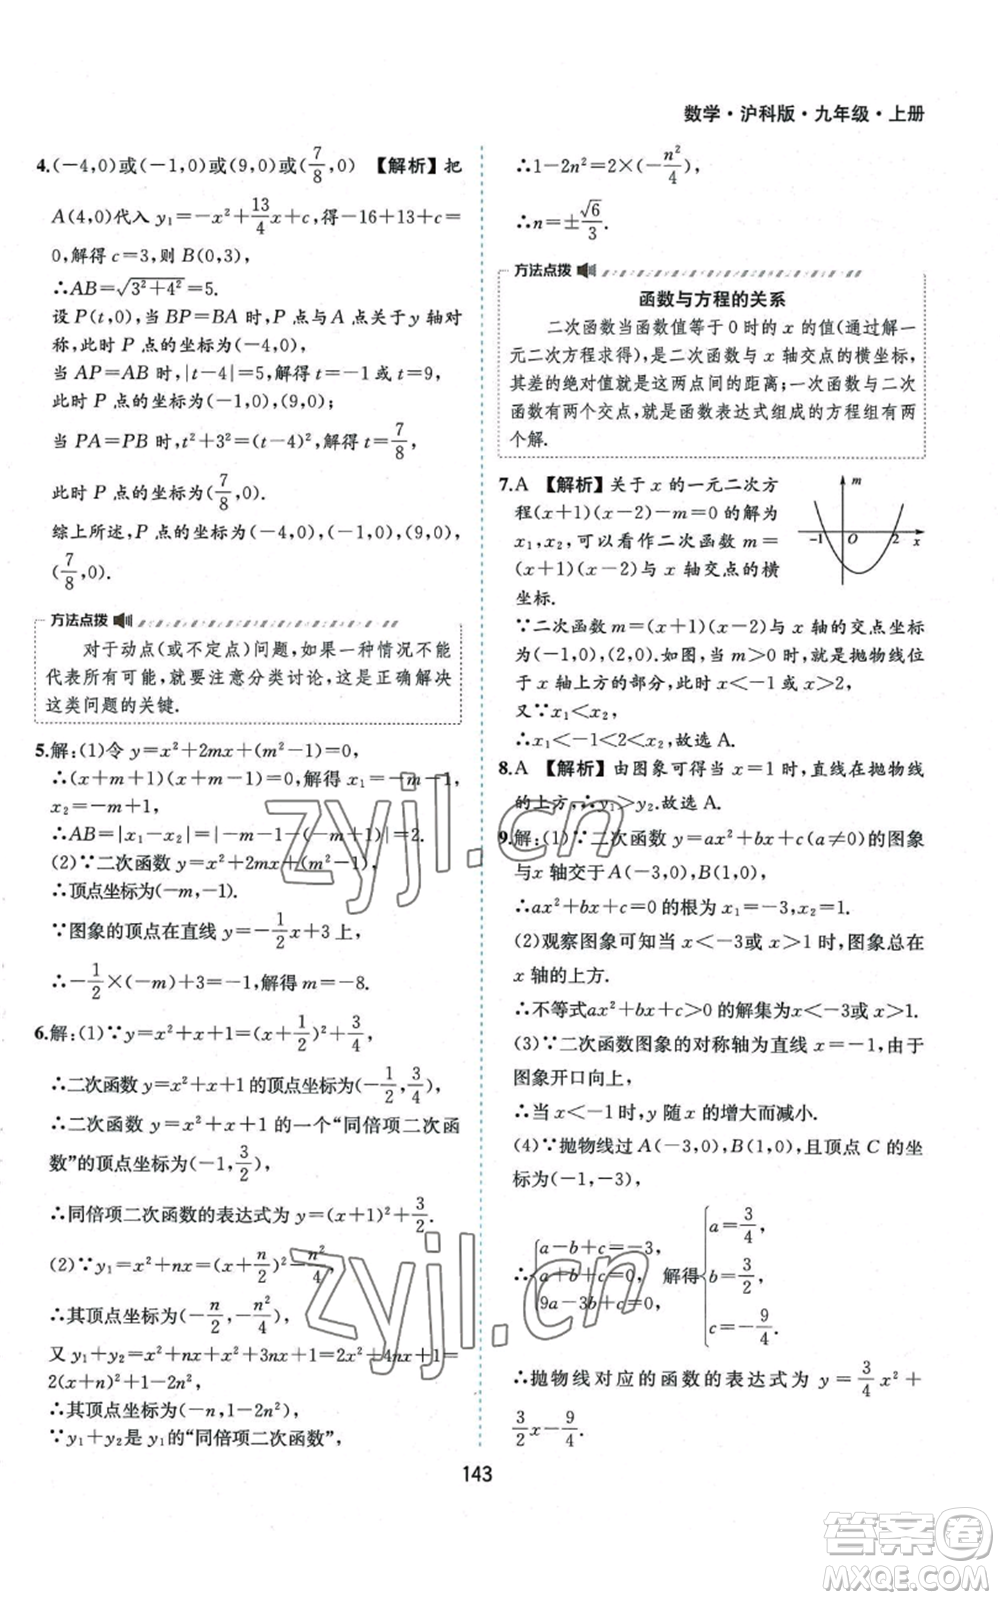 数学·沪科版·九年级·上册
4.(-4,0)或(-1,0)或(9,0)或(7/8,0) 【解析】把
A(4,0)代入 y₁=-x²+13/4x+c,得-16+13+c=
0,解得 c=3,则 B(0,3),
∴AB=√(3²+4²)=5.
设 P(t,0),当 BP=BA 时,P 点与 A 点关于 y 轴对
称,此时 P 点的坐标为(-4,0),
当 AP=AB 时,|t-4|=5,解得 t=-1 或 t=9,
此时 P 点的坐标为(-1,0),(9,0);
当 PA=PB 时,t²+3²=(t-4)²,解得 t=7/8,
此时 P 点的坐标为(7/8,0).
综上所述,P 点的坐标为(-4,0),(-1,0),(9,0),
(7/8,0).
方法点拨
对于动点(或不定点)问题,如果一种情况不能
代表所有可能,就要注意分类讨论,这是正确解决
这类问题的关键.
5.解:(1)令 y=x²+2mx+(m²-1)=0,
∴(x+m+1)(x+m-1)=0,解得 x₁=-m-1,
x₂=-m+1,
∴AB=|x₁-x₂|=|-m-1-(-m+1)|=2.
(2)∵二次函数 y=x²+2mx+(m²-1),
∴顶点坐标为(-m,-1).
∵图象的顶点在直线 y=-1/2x+3 上,
∴-1/2×(-m)+3=-1,解得 m=-8.
6.解:(1)∵y=x²+x+1=(x+1/2)²+3/4,
∴二次函数 y=x²+x+1 的顶点坐标为(-1/2,3/4),
∴二次函数 y=x²+x+1 的一个“同倍项二次函
数”的顶点坐标为(-1,3/2),
∴同倍项二次函数的表达式为 y=(x+1)²+3/2.
(2)∵y₁=x²+nx=(x+n/2)²-n²/4,
∴其顶点坐标为(-n/2,-n²/4).
又 y₁+y₂=x²+nx+x²+3nx+1=2x²+4nx+1=
2(x+n)²+1-2n²,
∴其顶点坐标为(-n,1-2n²).
∵y₁+y₂是 y₁的“同倍项二次函数”,
∴1-2n²=2×(-n²/4),
∴n=±√6/3.
方法点拨
函数与方程的关系
二次函数当函数值等于 0 时的 x 的值(通过解一
元二次方程求得),是二次函数与 x 轴交点的横坐标,
其差的绝对值就是这两点间的距离;一次函数与二次
函数有两个交点,就是函数表达式组成的方程组有两
个解.
7.A 【解析】关于 x 的一元二次方
程(x+1)(x-2)-m=0 的解为
x₁,x₂,可以看作二次函数 m=
(x+1)(x-2)与 x 轴交点的横
坐标.
m
-1 O 2 x
∵二次函数 m=(x+1)(x-2)与 x 轴的交点坐标
为(-1,0),(2,0).如图,当 m>0 时,就是抛物线位
于 x 轴上方的部分,此时 x<-1 或 x>2,
又∵x₁<x₂,
∴x₁<-1<2<x₂,故选 A.
8.A 【解析】由图象可得当 x=1 时,直线在抛物线
的上方,∴y₁>y₂.故选 A.
9.解:(1)∵二次函数 y=ax²+bx+c(a≠0)的图象
与 x 轴交于 A(-3,0),B(1,0),
∴ax²+bx+c=0 的根为 x₁=-3,x₂=1.
(2)观察图象可知当 x<-3或 x>1 时,图象总在
x 轴的上方.
∴不等式ax²+bx+c>0 的解集为x<-3或 x>1.
(3)∵二次函数图象的对称轴为直线 x=-1,由于
图象开口向上,
∴当 x<-1 时,y 随 x 的增大而减小.
(4)∵抛物线过 A(-3,0),B(1,0),且顶点 C 的坐
标为(-1,-3),
∴{a-b+c=-3, a+b+c=0, 9a-3b+c=0, 解得{a=3/4, b=3/2, c=-9/4.
∴抛物线对应的函数的表达式为 y=3/4x²+
3/2x-9/4.
143
zyjl.cn
zyjl.cn
答案圈
MXQE.COM